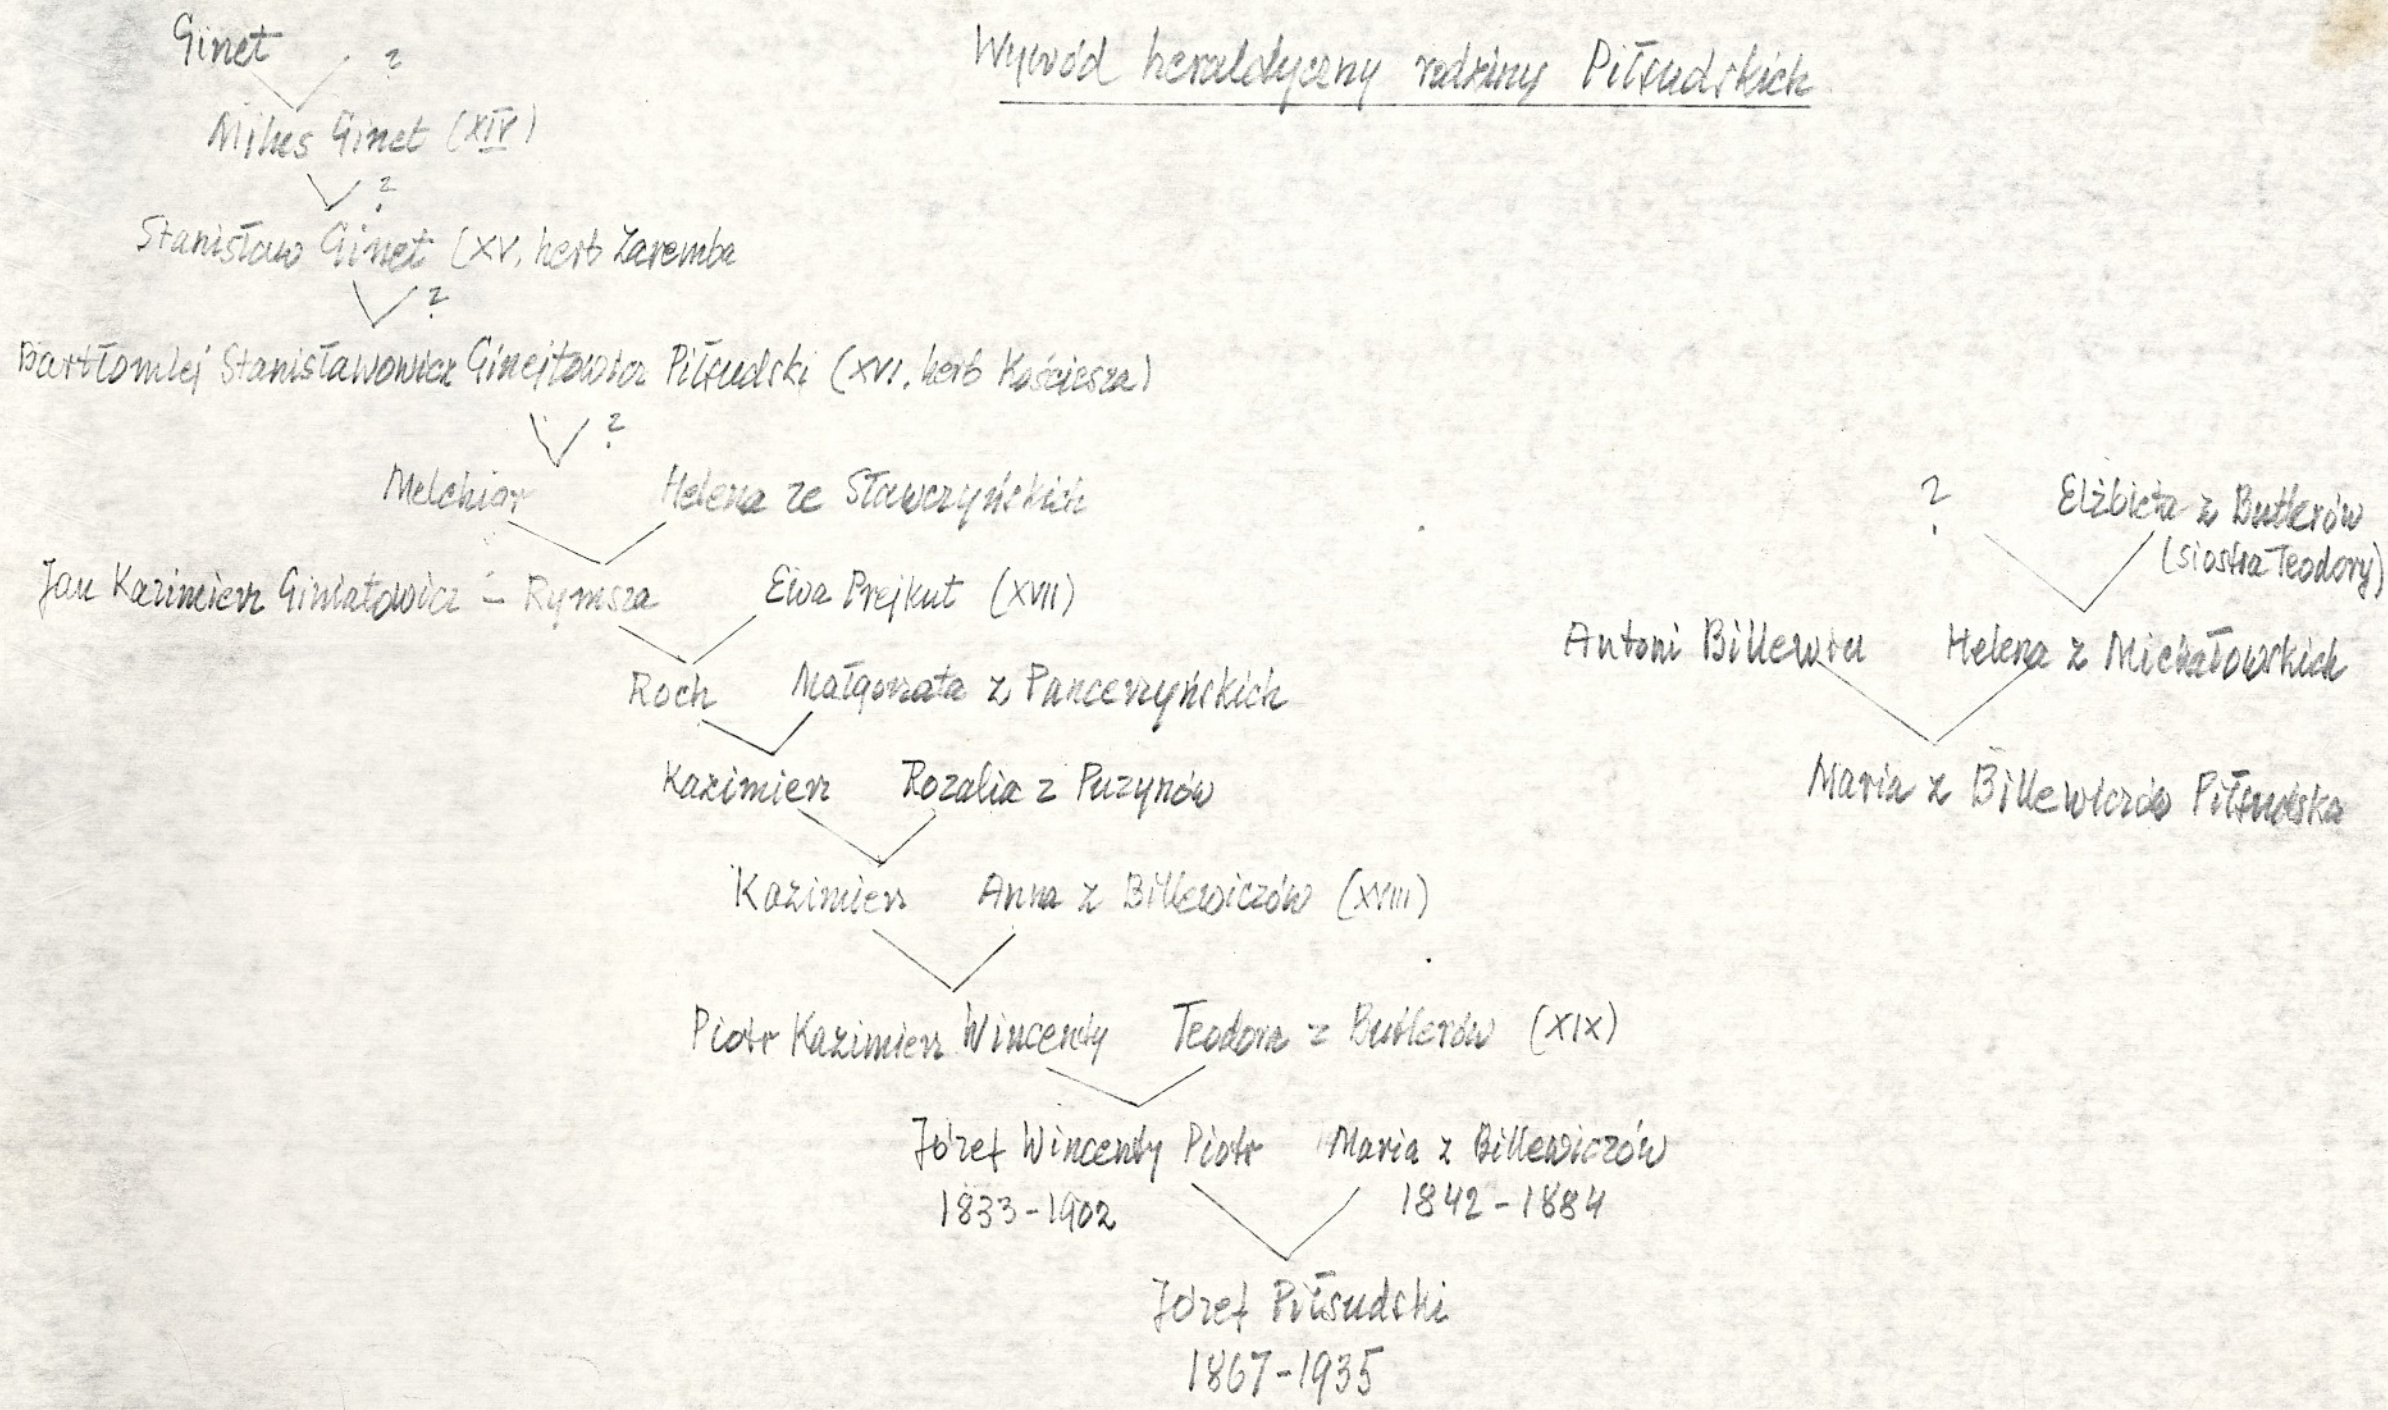 Wywód heraldyczny rodziny Piłsudskich
Ginet ?
Milus Ginet (XIV)
?
Stanisław Ginet (XV, herb Zaremba
?
Bartłomiej Stanisławowicz Ginejtowicz Piłsudski (XVI, herb Kościesza)
?
Melchior Helena ze Sławczyńskich
Jan Kazimierz Giniatowicz - Rymsza Ewa Prejkut (XVII)
Roch Małgorzata z Pancerzyńskich
Kazimierz Rozalia z Puzynów
Kazimierz Anna z Billewiczów (XVIII)
Piotr Kazimierz Wincenty Teodora z Butlerów (XIX)
Józef Wincenty Piotr Maria z Billewiczów
1833-1902 1842-1884
Józef Piłsudski
1867-1935
? Elżbieta z Butlerów
(siostra Teodory)
Antoni Billewicz Helena z Michałowskich
Maria z Billewiczów Piłsudska